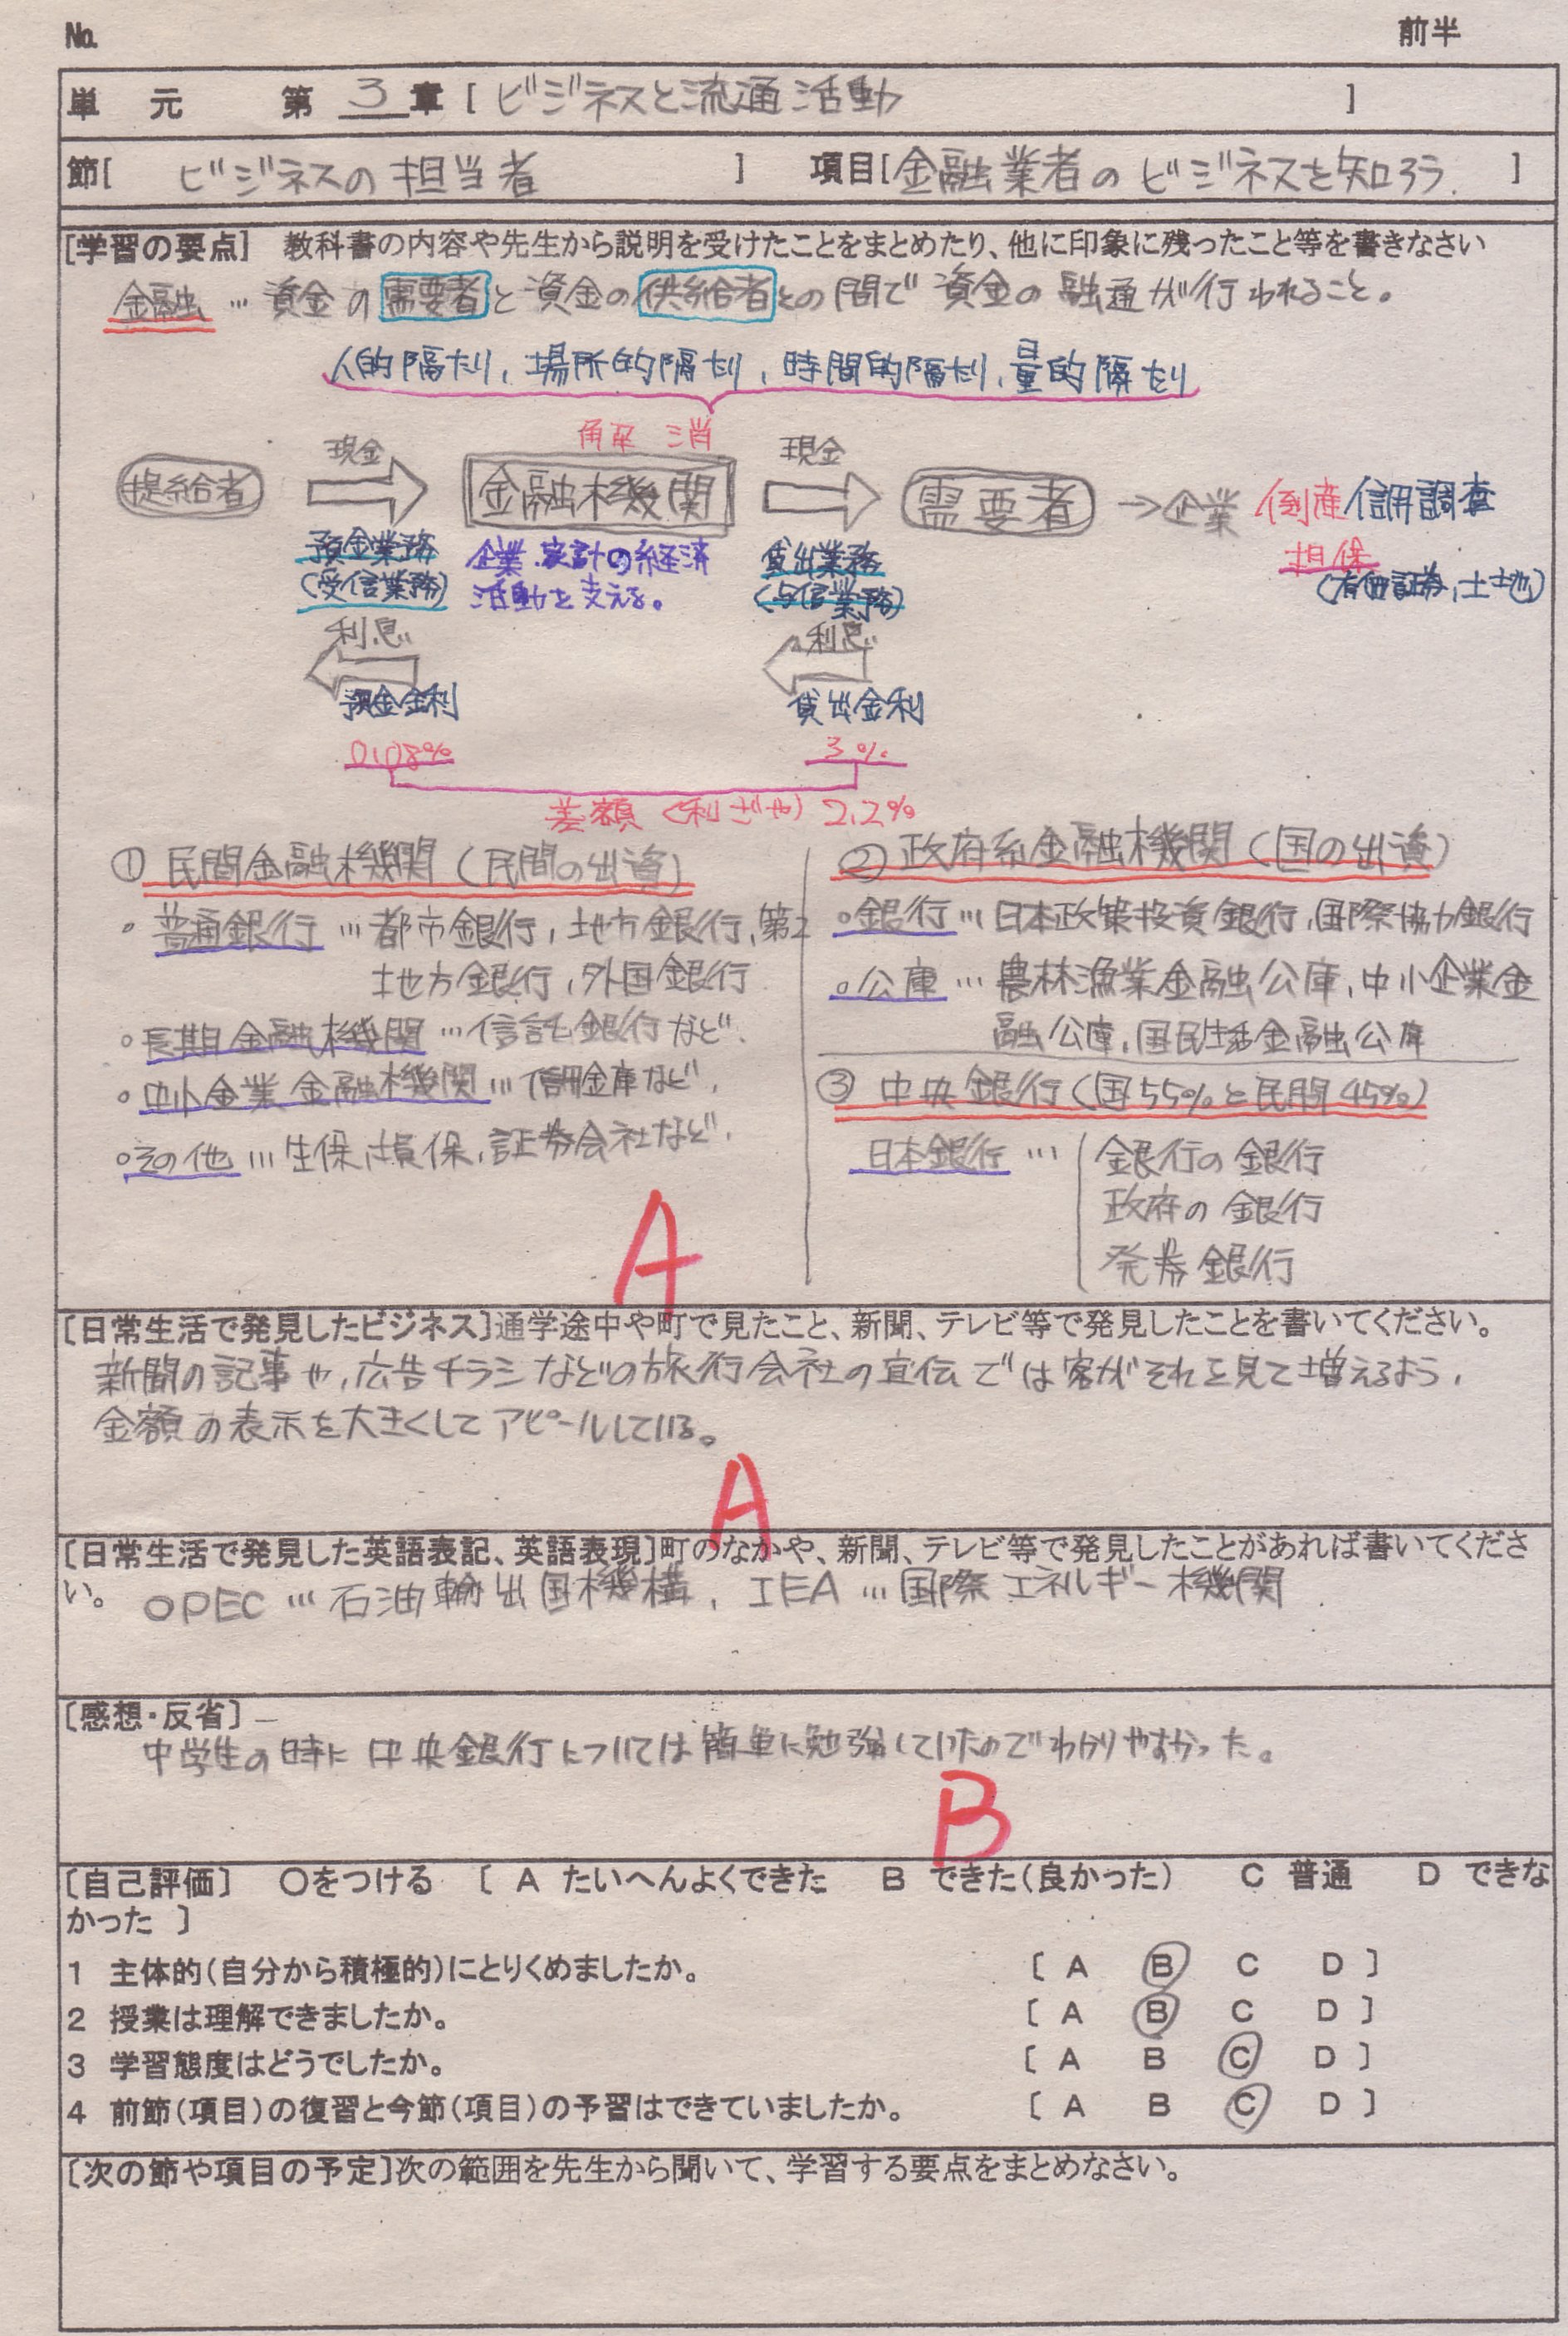 No.
前半
単 元 第 3 章 [ ビジネスと流通活動 ]
節[ ビジネスの担当者 ] 項目[金融業者のビジネスを知ろう. ]
[学習の要点] 教科書の内容や先生から説明を受けたことをまとめたり、他に印象に残ったこと等を書きなさい
金融…資金の需要者と資金の供給者との間で資金の融通が行われること。
人的隔たり, 場所的隔たり, 時間的隔たり, 量的隔たり
解消
現金 現金
提給者 金融機関 需要者 →企業 倒産 信用調査
預金業務 企業・家計の経済 貸出業務 担保
(受信業務) 活動を支える。 (与信業務) (有価証券, 土地)
利息 利息
預金金利 貸出金利
0.08% 3%
差額(利ざや) 2.2%
① 民間金融機関(民間の出資)
・普通銀行…都市銀行, 地方銀行, 第2
地方銀行, 外国銀行
・長期金融機関…信託銀行など.
・中小企業金融機関…信用金庫など.
・その他…生保, 損保, 証券会社など.
② 政府系金融機関(国の出資)
・銀行…日本政策投資銀行, 国際協力銀行
・公庫…農林漁業金融公庫, 中小企業金
融公庫, 国民生活金融公庫
③ 中央銀行(国55%と民間45%)
日本銀行… 銀行の銀行
政府の銀行
発券銀行
A
[日常生活で発見したビジネス]通学途中や町で見たこと、新聞、テレビ等で発見したことを書いてください。
新聞の記事や, 広告チラシなどの旅行会社の宣伝では客がそれを見て増えるよう,
金額の表示を大きくしてアピールしている。
A
[日常生活で発見した英語表記、英語表現]町のなかや、新聞、テレビ等で発見したことがあれば書いてくださ
い。 OPEC…石油輸出国機構, IEA…国際エネルギー機関
[感想・反省]
中学生の時に中央銀行については簡単に勉強していたのでわかりやすかった。
B
[自己評価] 〇をつける [ A たいへんよくできた B できた(良かった) C 普通 D できな
かった ]
1 主体的(自分から積極的)にとりくめましたか。 [ A B C D ]
2 授業は理解できましたか。 [ A B C D ]
3 学習態度はどうでしたか。 [ A B C D ]
4 前節(項目)の復習と今節(項目)の予習はできていましたか。 [ A B C D ]
[次の節や項目の予定]次の範囲を先生から聞いて、学習する要点をまとめなさい。